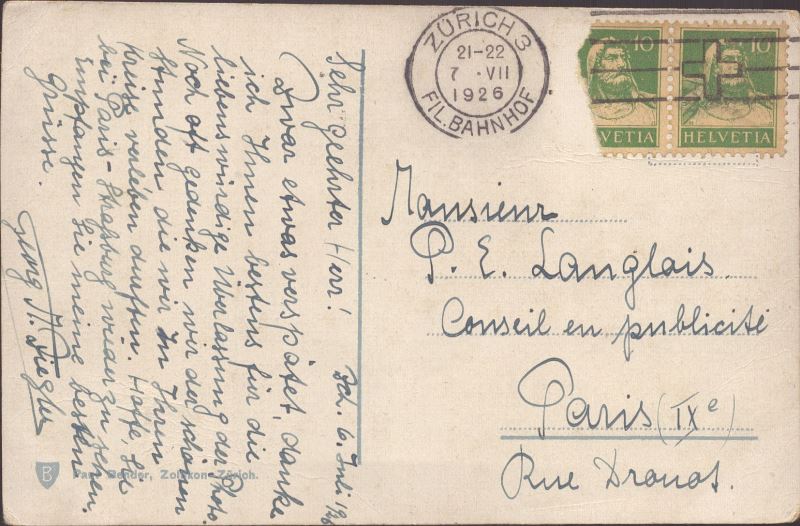 Zch. 6. Juli 1926
Sehr geehrter Herr!
Zwar etwas verspätet, danke
ich Ihnen bestens für die
liebenswürdige Überlassung der Photo.
Noch oft gedenken wir der schönen
Stunden die wir in Ihrem
Kreise verleben durften. Hoffe, Sie
bei Paris-Straßburg wieder zu sehen.
Empfangen Sie meine besten
Grüsse.
Georg
ZÜRICH 3
21-22
7 · VII
1926
FIL. BAHNHOF
10
10
HELVETIA
HELVETIA
Monsieur
P. E. Langlais.
Conseil en publicité
Paris (IXe)
Rue Drouot.
B
Paul Bender, Zollikon-Zürich.